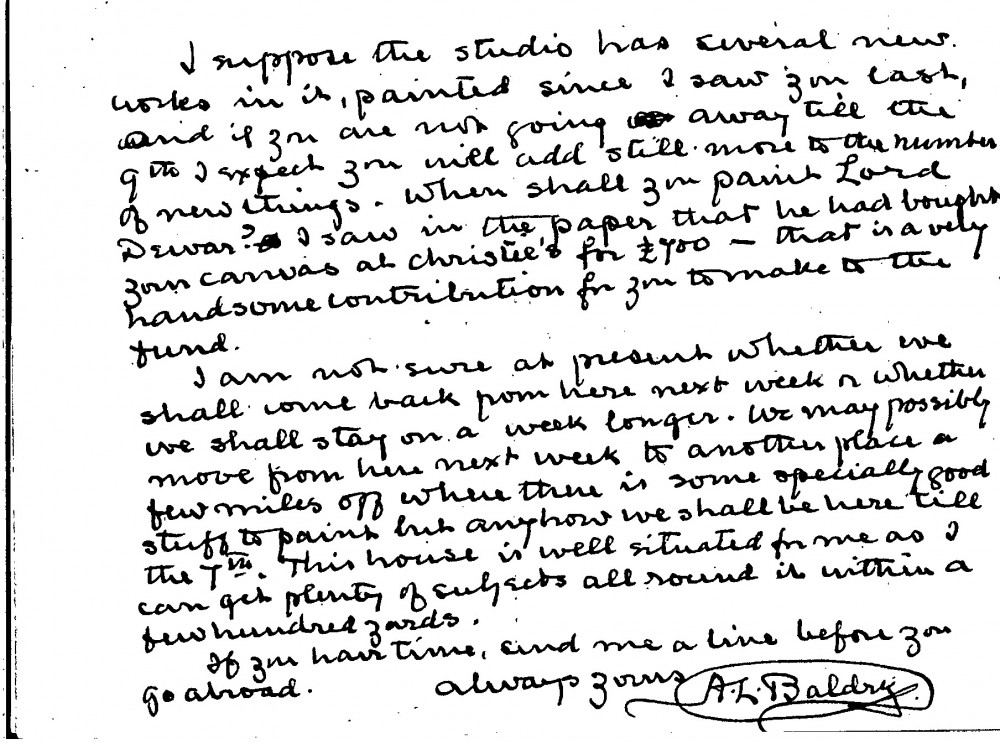 I suppose the studio has several new
works in it, painted since I saw you last,
and if you are not going away till the
9th I expect you will add still more to the number
of new things. When shall you paint Lord
Dewar? I saw in the paper that he had bought
your canvas at Christie's for £700 — that is a very
handsome contribution for you to make to the
fund.
I am not sure at present whether we
shall come back from here next week or whether
we shall stay on a week longer. We may possibly
move from here next week to another place a
few miles off where there is some specially good
stuff to paint but anyhow we shall be here till
the 7th. This house is well situated for me as I
can get plenty of subjects all round it within a
few hundred yards.
If you have time, send me a line before you
go abroad. Always yours A. L. Baldry.